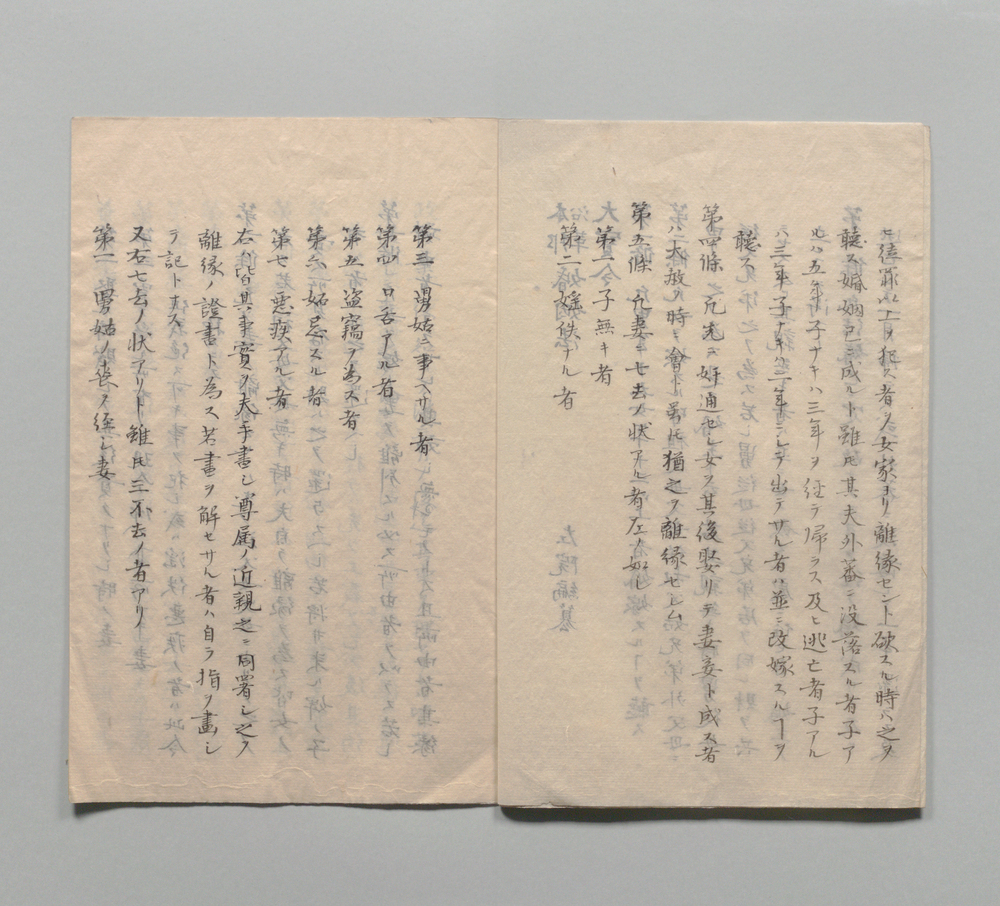 ヒ徒罪以上ヲ犯ス者ヲ女家ヨリ離縁セント欲スル時ハ之ヲ
聴ス婚姻已ニ成ルト雖𪜈其夫外蕃ニ没落スル者子ア
ルハ五年子ナキハ三年ヲ経テ帰ラス及ヒ逃亡者子アル
ハ三年子ナキハ二年ニシテ出テサル者ハ並ニ改嫁スルヿヲ
聴ス
第四條 凡先ニ奸通セシ女ヲ其後娶リテ妻妾ト成ス者
ハ大赦ノ時ニ會ト雖𪜈猶之ヲ離縁セシム
第五條 凡妻ニ七去ノ状アル者左ノ如シ
第一 子無キ者
第二 婬佚ナル者
第三 舅姑ニ事ヘサル者
第四 口舌アル者
第五 盗竊ヲ為ス者
第六 妬忌スル者
第七 悪疾アル者
右ハ皆其事實ヲ夫手書シ尊属ノ近親之ニ同署シ之ヲ
離縁ノ證書ト為ス若書ヲ解セサル者ハ自ラ指ヲ畫シ
テ記ト為ス
又右七去ノ状アリト雖𪜈三不去ノ者アリ
第一 舅姑ノ喪ヲ経シ妻